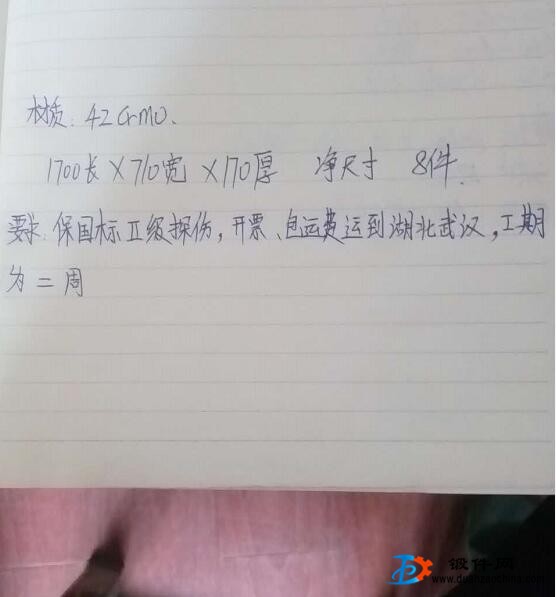 材质: 42CrMo.
1700长×710宽×170厚 净尺寸 8件.
要求: 保国标Ⅱ级探伤,开票、包运费运到湖北武汉,工期
为二周
锻件网